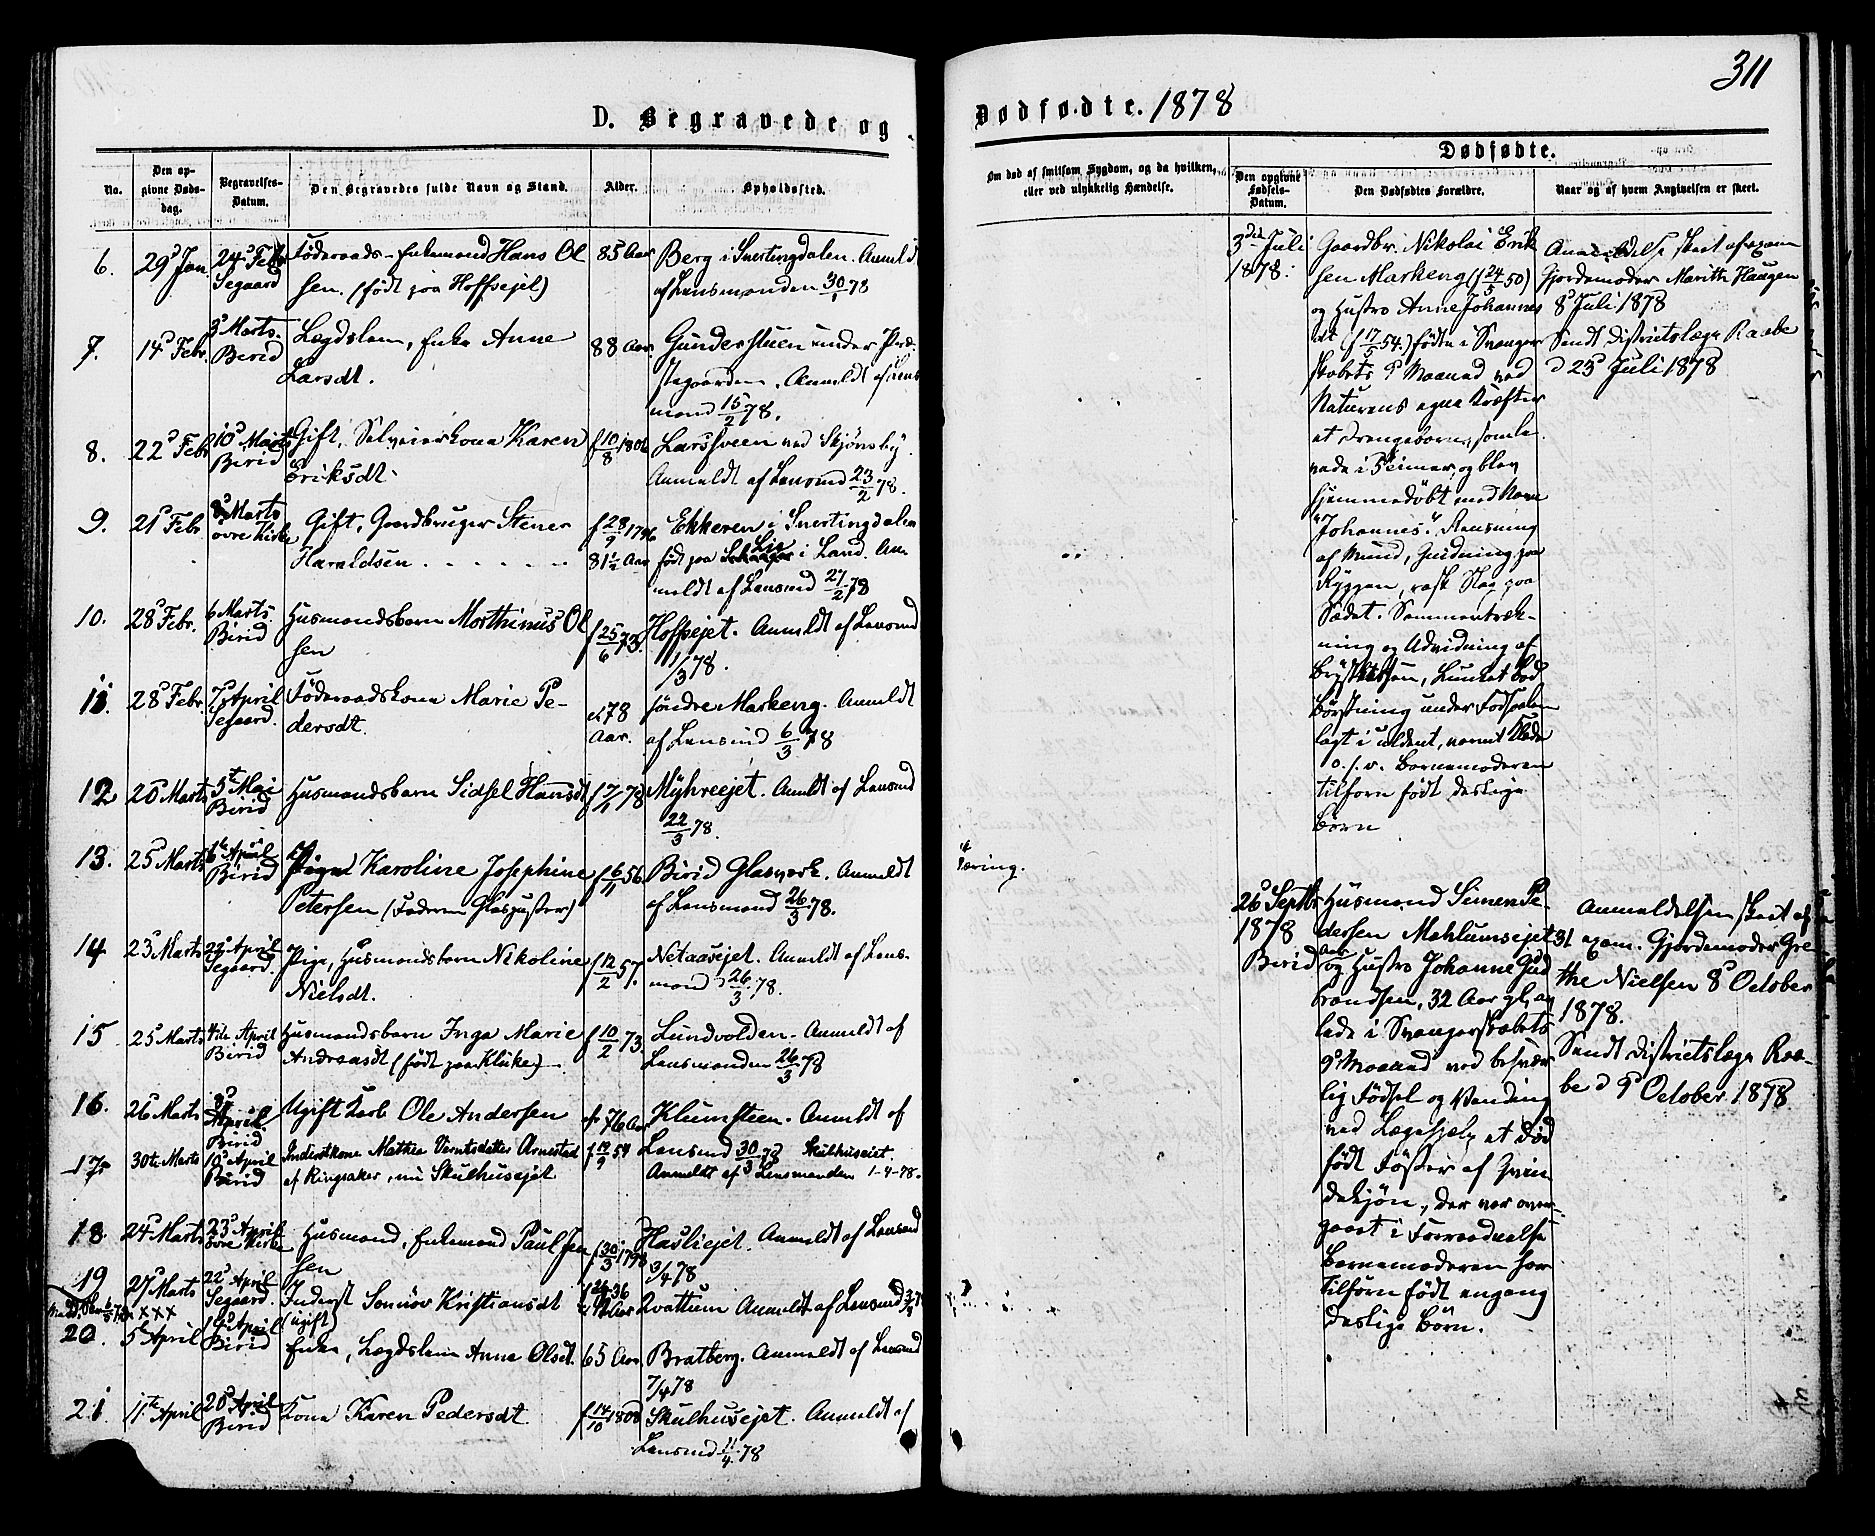 311
D. Begravede og
Dødfødte. 1878
No.
Den opgivne Dødsdag.
Begravelses-Datum.
Den Begravedes fulde Navn og Stand.
Alder.
Opholdssted.
6.
29d Jan.
24d Febr
Segaard
Föderaads-Enkemand Hans Ol
sen. (født paa Hoffsejet)
85 Aar
Berg i Snertingdalen. Anmeldt
af Lensmanden 30/1 78
7.
14d Febr.
3d Marts.
Birid
Lægdslem, Enke Anne
Larsdt.
88 Aar.
Gunderstuen under Præ-
stegaarden. Anmeldt af Lens
mand 15/2 78.
8.
22d Febr
10d Marts
Birid
Gift, Selveierkone Karen
Eriksdt.
f 10/8 1806
Larssveen ved Skjønsby.
Anmeldt af Lensmd 23/2 78.
9.
21d Febr.
Marts
övre Kirke
Gift, Gaardbruger Stener
Haraldsen
f 28/9 1796
81½ Aar
Ekkeren i Snertingdalen
født paa Lie i Land. An-
meldt af Lensmd 27/2 78
10.
28d Febr.
6 Marts.
Birid
Husmandsbarn Morthinus Ol
sen
f 25/6 73.
Hoffsejet. Anmeldt af Lensmd
1/3 78.
11.
28d Febr.
7d April
Segaard.
Föderaadskone Marie Pe-
dersdt.
78
Aar.
söndre Markeng. Anmeldt
af Lensmd 6/3 78
12
20d Marts
5te Mai
Birid
Husmandsbarn Sidsel Hansdt
f 7/1 78
Myhreejet. Anmldt af Lensmd
22/3 78.
13.
25d Marts
April
Birid
Pige Karoline Josephine
Petersen (Faderen Glaspuster)
f 6/11 56
Birid Glasværk. Anmeldt
af Lensmand 26/3 78.
14
23d Marts
22d April
Segaard.
Pige, Husmandsbarn Nikoline
Nielsdt.
f 12/2 57.
Netaasejet. Anmeldt af Lens-
mand 26/3 78.
15
25d Marts
4de April
Birid
Husmandsbarn Inga Marie
Andreasdt (født paa Klüke)
f 10/2 73.
Lundvolden. Anmeldt af
Lensmanden 26/3 78
16.
26d Marts
April
Birid
Ugift Karl Ole Andersen
76 Aar
Klumsteen. Anmeldt af
Lensmd 30/3 78
17.
30te Marts
10d April
Birid
Inderstkone Mathea Berntsdatter Arnestad
af Ringsaker, nu Skulhusejet
f 12/9 54
Skulhuseiet.
Anmeldt af Lensmanden 1-4-78.
18.
24d Marts
23d April
övre Kirke
Husmand, Enkemand Paul Jen
sen
f 30/3 1798
Hasliejet. Anmeldt af Lensmd
3/4 78
19
27d Marts
22d April
Segaard.
Inderst Sonnöv Kristiansdt
(ugift)
Kvattum Anmeldt af Lensmd
20.
5te April
19d April
Birid
Enke, Lægdslem Anne Olsdt.
65 Aar.
Bratberg. Anmeldt af Lensmd
7/4 78
21
11te April
20d April
Birid
Kone Karen Pedersdt
f 14/10 1808
Skulhusejet. Anmeldt af
Lensmd 11/4 78
Om død af smitsom Sygdom, og da hvilken,
eller ved ulykkelig Hændelse.
Tæring.
Dødfødte.
Den opgivne
Fødsels-
Datum.
Den Dødfødtes Forældre.
Naar og af hvem Angivelsen er skeet.
3die Juli
1878.
Gaardbr. Nikolai Erik
sen Markeng (f 24/5 50)
og Hustro Anne Johannes
dt (f 17/5 54.) födte i Svanger
skabets 9d Maaned ved
Naturens egne Kræfter
et Drengebarn, som le
vede i 5 Timer, og blev
hjemmedøbt med Navn
"Johannes". Rensning
af Mund, Gnidning paa
Ryggen, rask Slag paa
Sædet. Sammentræk-
ning og Udvidning af
Brystkassen, Lunket Bad
Börstning under Fodsaalen
lagt i uldent, varmt Klæde
o.s.v. Barnemoderen
tilforn født deslige
Börn
Anmeldelse skeet af exam
Gjordemoder Marith Haugen
8d Juli 1878
Sendt Districtslæge Raabe
d 23d Juli 1878
26d Septbr
1878
Birid
Husmand Simen Pe-
dersen Mæhlumsejet 31
Aar
og Hustro Johanne Gud
brandsen, 32 Aar gl, av
lede i Svangerskabets
9d Maaned ved besvær
lig Födsel og Vending
ved Lægehjelp et Död
födt Foster af Qvin
dekjön, der var over-
gaaet i Forraadnelse
Barnemoderen har
tilforn født engang
deslige Börn.
Anmeldelsen skeet af
exam. Gjordemoder Gre
the Nielsen 8d October
1878.
Sendt Districtslæge Raa-
be d 9d October 1878